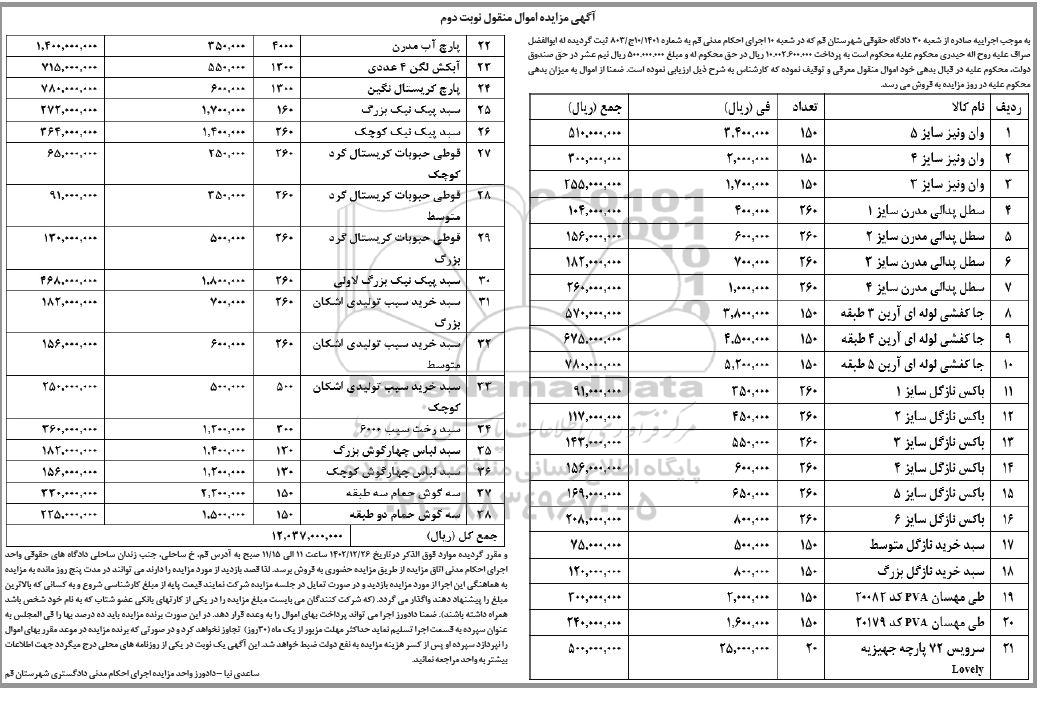 آگهی مزایده اموال منقول نوبت دوم
به موجب اجراییه صادره از شعبه ۳۰ دادگاه حقوقی شهرستان قم که در شعبه ۱۰ اجرای احکام مدنی قم به شماره ۱۰/۱۴۰۱ج/۸۰۳ ثبت گردیده له ابوالفضل
صراف علیه روح اله حیدری محکوم علیه محکوم است به پرداخت ۱۰.۰۰۲.۶۰۰.۰۰۰ ریال در حق محکوم له و مبلغ ۵۰۰.۰۰۰.۰۰۰ ریال نیم عشر در حق صندوق
دولت. محکوم علیه در قبال بدهی خود اموال منقول معرفی و توقیف نموده که کارشناس به شرح ذیل ارزیابی نموده است. ضمنا از اموال به میزان بدهی
محکوم علیه در روز مزایده به فروش می رسد.
ردیف نام کالا تعداد فی (ریال) جمع (ریال)
۱ وان ونیز سایز ۵ ۱۵۰ ۳,۴۰۰,۰۰۰ ۵۱۰,۰۰۰,۰۰۰
۲ وان ونیز سایز ۴ ۱۵۰ ۲,۰۰۰,۰۰۰ ۳۰۰,۰۰۰,۰۰۰
۳ وان ونیز سایز ۳ ۱۵۰ ۱,۷۰۰,۰۰۰ ۲۵۵,۰۰۰,۰۰۰
۴ سطل پدالی مدرن سایز ۱ ۲۶۰ ۴۰۰,۰۰۰ ۱۰۴,۰۰۰,۰۰۰
۵ سطل پدالی مدرن سایز ۲ ۲۶۰ ۶۰۰,۰۰۰ ۱۵۶,۰۰۰,۰۰۰
۶ سطل پدالی مدرن سایز ۳ ۲۶۰ ۷۰۰,۰۰۰ ۱۸۲,۰۰۰,۰۰۰
۷ سطل پدالی مدرن سایز ۴ ۲۶۰ ۱,۰۰۰,۰۰۰ ۲۶۰,۰۰۰,۰۰۰
۸ جا کفشی لوله ای آرین ۳ طبقه ۱۵۰ ۳,۸۰۰,۰۰۰ ۵۷۰,۰۰۰,۰۰۰
۹ جا کفشی لوله ای آرین ۴ طبقه ۱۵۰ ۴,۵۰۰,۰۰۰ ۶۷۵,۰۰۰,۰۰۰
۱۰ جا کفشی لوله ای آرین ۵ طبقه ۱۵۰ ۵,۲۰۰,۰۰۰ ۷۸۰,۰۰۰,۰۰۰
۱۱ باکس نازگل سایز ۱ ۲۶۰ ۳۵۰,۰۰۰ ۹۱,۰۰۰,۰۰۰
۱۲ باکس نازگل سایز ۲ ۲۶۰ ۴۵۰,۰۰۰ ۱۱۷,۰۰۰,۰۰۰
۱۳ باکس نازگل سایز ۳ ۲۶۰ ۵۵۰,۰۰۰ ۱۴۳,۰۰۰,۰۰۰
۱۴ باکس نازگل سایز ۴ ۲۶۰ ۶۰۰,۰۰۰ ۱۵۶,۰۰۰,۰۰۰
۱۵ باکس نازگل سایز ۵ ۲۶۰ ۶۵۰,۰۰۰ ۱۶۹,۰۰۰,۰۰۰
۱۶ باکس نازگل سایز ۶ ۲۶۰ ۸۰۰,۰۰۰ ۲۰۸,۰۰۰,۰۰۰
۱۷ سبد خرید نازگل متوسط ۱۵۰ ۵۰۰,۰۰۰ ۷۵,۰۰۰,۰۰۰
۱۸ سبد خرید نازگل بزرگ ۱۵۰ ۸۰۰,۰۰۰ ۱۲۰,۰۰۰,۰۰۰
۱۹ طی مهسان PVA کد ۲۰۰۸۲ ۱۵۰ ۲,۰۰۰,۰۰۰ ۳۰۰,۰۰۰,۰۰۰
۲۰ طی مهسان PVA کد ۲۰۱۷۹ ۱۵۰ ۱,۶۰۰,۰۰۰ ۲۴۰,۰۰۰,۰۰۰
۲۱ سرویس ۷۲ پارچه جهیزیه ۲۰ ۲۵,۰۰۰,۰۰۰ ۵۰۰,۰۰۰,۰۰۰
Lovely
۲۲ پارچ آب مدرن ۴۰۰۰ ۳۵۰,۰۰۰ ۱,۴۰۰,۰۰۰,۰۰۰
۲۳ آبکش لگن ۴ عددی ۱۳۰۰ ۵۵۰,۰۰۰ ۷۱۵,۰۰۰,۰۰۰
۲۴ پارچ کریستال نگین ۱۳۰۰ ۶۰۰,۰۰۰ ۷۸۰,۰۰۰,۰۰۰
۲۵ سبد پیک نیک بزرگ ۱۶۰ ۱,۷۰۰,۰۰۰ ۲۷۲,۰۰۰,۰۰۰
۲۶ سبد پیک نیک کوچک ۲۶۰ ۱,۴۰۰,۰۰۰ ۳۶۴,۰۰۰,۰۰۰
۲۷ قوطی حبوبات کریستال گرد ۲۶۰ ۲۵۰,۰۰۰ ۶۵,۰۰۰,۰۰۰
کوچک
۲۸ قوطی حبوبات کریستال گرد ۲۶۰ ۳۵۰,۰۰۰ ۹۱,۰۰۰,۰۰۰
متوسط
۲۹ قوطی حبوبات کریستال گرد ۲۶۰ ۵۰۰,۰۰۰ ۱۳۰,۰۰۰,۰۰۰
بزرگ
۳۰ سبد پیک نیک بزرگ لاولی ۲۶۰ ۱,۸۰۰,۰۰۰ ۴۶۸,۰۰۰,۰۰۰
۳۱ سبد خرید سیب تولیدی اشکان ۲۶۰ ۷۰۰,۰۰۰ ۱۸۲,۰۰۰,۰۰۰
بزرگ
۳۲ سبد خرید سیب تولیدی اشکان ۲۶۰ ۶۰۰,۰۰۰ ۱۵۶,۰۰۰,۰۰۰
متوسط
۳۳ سبد خرید سیب تولیدی اشکان ۵۰۰ ۵۰۰,۰۰۰ ۲۵۰,۰۰۰,۰۰۰
کوچک
۳۴ سبد رخت سیب ۶۰۰۰ ۳۰۰ ۱,۲۰۰,۰۰۰ ۳۶۰,۰۰۰,۰۰۰
۳۵ سبد لباس چهارگوش بزرگ ۱۳۰ ۱,۴۰۰,۰۰۰ ۱۸۲,۰۰۰,۰۰۰
۳۶ سبد لباس چهارگوش کوچک ۱۳۰ ۱,۲۰۰,۰۰۰ ۱۵۶,۰۰۰,۰۰۰
۳۷ سه گوش حمام سه طبقه ۱۵۰ ۲,۲۰۰,۰۰۰ ۳۳۰,۰۰۰,۰۰۰
۳۸ سه گوش حمام دو طبقه ۱۵۰ ۱,۵۰۰,۰۰۰ ۲۲۵,۰۰۰,۰۰۰
جمع کل (ریال) ۱۲,۰۳۷,۰۰۰,۰۰۰
و مقرر گردیده موارد فوق الذکر در تاریخ ۱۴۰۲/۱۲/۲۶ ساعت ۱۱ الی ۱۱/۱۵ صبح به آدرس قم، خ ساحلی، جنب زندان ساحلی دادگاه های حقوقی واحد
اجرای احکام مدنی اتاق مزایده از طریق مزایده حضوری به فروش برسد. لذا قصد بازدید از مورد مزایده را دارند می توانند در مدت پنج روز مانده به مزایده
به هماهنگی این اجرا از مورد مزایده بازدید و در صورت تمایل در جلسه مزایده شرکت نمایند قیمت پایه از مبلغ کارشناسی شروع و به کسانی که بالاترین
مبلغ را پیشنهاد دهند واگذار می گردد. (که شرکت کنندگان می بایست مبلغ مزایده را در یکی از کارتهای بانکی عضو شتاب که به نام خود شخص باشد
همراه داشته باشند). ضمنا دادورز اجرا می تواند پرداخت بهای اموال را به وعده قرار دهد. در این صورت برنده مزایده باید ده درصد بها را فی المجلس به
عنوان سپرده به قسمت اجرا تسلیم نماید حداکثر مهلت مزبور از یک ماه (۳۰روز) تجاوز نخواهد کرد و در صورتی که برنده مزایده در موعد مقرر بهای اموال
را نپردازد سپرده او پس از کسر هزینه مزایده به نفع دولت ضبط خواهد شد. این آگهی یک نوبت در یکی از روزنامه های محلی درج میگردد جهت اطلاعات
بیشتر به واحد مراجعه نمائید.
ساعدی نیا – دادورز واحد مزایده اجرای احکام مدنی دادگستری شهرستان قم
ParsNamadData
پایگاه اطلاع رسانی مناقصه و مزایده
۰۲۱-۸۸۳۴۹۶۷۰-۵